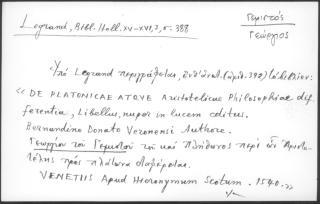 Legrand, Bibl. Hell. XV-XVI, 3, σ. 388
Γεμιστός
Γεώργιος
Ὑπό Legrand περιγράφεται, (ἀριθ. 392)
« DE PLATONICAE ATQVE Aristotelicae Philosophiae dif
ferentia, Libellus, nuper in lucem editus.
Bernardino Donato Veronensi Authore.
Γεωργίου τοῦ Γεμιστοῦ τοῦ καὶ Πλήθωνος περὶ ὧν Ἀριστο
τέλης πρὸς Πλάτωνα διαφέρεται.
VENETIIS Apud Hieronymum Scotum. 1540. »